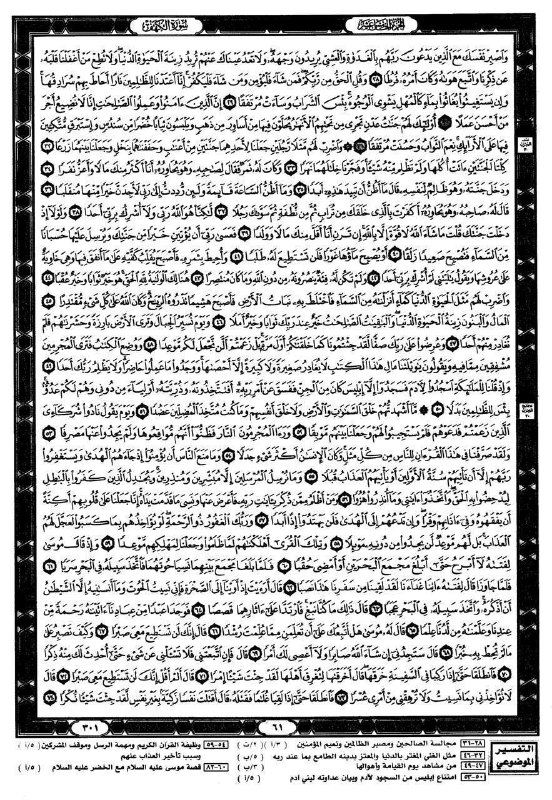 واصبر نفسك مع الذين يدعون ربهم بالغدوة والعشي يريدون وجهه ولا تعد عيناك عنهم تريد زينة الحيوة الدنيا ولا تطع من أغفلنا قلبه
عن ذكرنا واتبع هوىه وكان أمره فرطا ٢٨ وقل الحق من ربكم فمن شاء فليؤمن ومن شاء فليكفر إنا أعتدنا للظلمين نارا أحاط بهم سرادقها
وإن يستغيثوا يغاثوا بماء كالمهل يشوي الوجوه بئس الشراب وساءت مرتفقا ٢٩ إن الذين ءامنوا وعملوا الصلحت إنا لا نضيع أجر
من أحسن عملا ٣٠ أولئك لهم جنت عدن تجري من تحتهم الأنهر يحلون فيها من أساور من ذهب ويلبسون ثيابا خضرا من سندس وإستبرق متكئين
فيها على الأرائك نعم الثواب وحسنت مرتفقا ٣١ واضرب لهم مثلا رجلين جعلنا لأحدهما جنتين من أعنب وحففنهما بنخل وجعلنا بينهما زرعا ٣٢
كلتا الجنتين ءاتت أكلها ولم تظلم منه شيئا وفجرنا خللهما نهرا ٣٣ وكان له ثمر فقال لصحبه وهو يحاوره أنا أكثر منك مالا وأعز نفرا ٣٤
ودخل جنته وهو ظالم لنفسه قال ما أظن أن تبيد هذه أبدا ٣٥ وما أظن الساعة قائمة ولئن رددت إلى ربي لأجدن خيرا منها منقلبا ٣٦
قال له صاحبه وهو يحاوره أكفرت بالذي خلقك من تراب ثم من نطفة ثم سوىك رجلا ٣٧ لكنا هو الله ربي ولا أشرك بربي أحدا ٣٨ ولولا إذ
دخلت جنتك قلت ما شاء الله لا قوة إلا بالله إن ترن أنا أقل منك مالا وولدا ٣٩ فعسى ربي أن يؤتين خيرا من جنتك ويرسل عليها حسبانا
من السماء فتصبح صعيدا زلقا ٤٠ أو يصبح ماؤها غورا فلن تستطيع له طلبا ٤١ وأحيط بثمره فأصبح يقلب كفيه على ما أنفق فيها وهي خاوية
على عروشها ويقول يليتني لم أشرك بربي أحدا ٤٢ ولم تكن له فئة ينصرونه من دون الله وما كان منتصرا ٤٣ هنالك الولية لله الحق هو خير ثوابا وخير عقبا ٤٤
واضرب لهم مثل الحيوة الدنيا كماء أنزلنه من السماء فاختلط به نبات الأرض فأصبح هشيما تذروه الريح وكان الله على كل شيء مقتدرا ٤٥
المال والبنون زينة الحيوة الدنيا والبقيت الصلحت خير عند ربك ثوابا وخير أملا ٤٦ ويوم نسير الجبال وترى الأرض بارزة وحشرنهم فلم
نغادر منهم أحدا ٤٧ وعرضوا على ربك صفا لقد جئتمونا كما خلقنكم أول مرة بل زعمتم ألن نجعل لكم موعدا ٤٨ ووضع الكتب فترى المجرمين
مشفقين مما فيه ويقولون يويلتنا مال هذا الكتب لا يغادر صغيرة ولا كبيرة إلا أحصىها ووجدوا ما عملوا حاضرا ولا يظلم ربك أحدا ٤٩
وإذ قلنا للملئكة اسجدوا لءادم فسجدوا إلا إبليس كان من الجن ففسق عن أمر ربه أفتتخذونه وذريته أولياء من دوني وهم لكم عدو
بئس للظلمين بدلا ٥٠ ما أشهدتهم خلق السموت والأرض ولا خلق أنفسهم وما كنت متخذ المضلين عضدا ٥١ ويوم يقول نادوا شركاءي
الذين زعمتم فدعوهم فلم يستجيبوا لهم وجعلنا بينهم موبقا ٥٢ ورءا المجرمون النار فظنوا أنهم مواقعوها ولم يجدوا عنها مصرفا ٥٣
ولقد صرفنا في هذا القرءان للناس من كل مثل وكان الإنسن أكثر شيء جدلا ٥٤ وما منع الناس أن يؤمنوا إذ جاءهم الهدى ويستغفروا
ربهم إلا أن تأتيهم سنة الأولين أو يأتيهم العذاب قبلا ٥٥ وما نرسل المرسلين إلا مبشرين ومنذرين ويجدل الذين كفروا بالبطل
ليدحضوا به الحق واتخذوا ءايتي وما أنذروا هزوا ٥٦ ومن أظلم ممن ذكر بءايت ربه فأعرض عنها ونسي ما قدمت يداه إنا جعلنا على قلوبهم أكنة
أن يفقهوه وفي ءاذانهم وقرا وإن تدعهم إلى الهدى فلن يهتدوا إذا أبدا ٥٧ وربك الغفور ذو الرحمة لو يؤاخذهم بما كسبوا لعجل لهم
العذاب بل لهم موعد لن يجدوا من دونه موئلا ٥٨ وتلك القرى أهلكنهم لما ظلموا وجعلنا لمهلكهم موعدا ٥٩ وإذ قال موسى
لفتىه لا أبرح حتى أبلغ مجمع البحرين أو أمضي حقبا ٦٠ فلما بلغا مجمع بينهما نسيا حوتهما فاتخذ سبيله في البحر سربا ٦١
فلما جاوزا قال لفتىه ءاتنا غداءنا لقد لقينا من سفرنا هذا نصبا ٦٢ قال أرءيت إذ أوينا إلى الصخرة فإني نسيت الحوت وما أنسىنيه إلا الشيطن
أن أذكره واتخذ سبيله في البحر عجبا ٦٣ قال ذلك ما كنا نبغ فارتدا على ءاثارهما قصصا ٦٤ فوجدا عبدا من عبادنا ءاتينه رحمة من
عندنا وعلمنه من لدنا علما ٦٥ قال له موسى هل أتبعك على أن تعلمن مما علمت رشدا ٦٦ قال إنك لن تستطيع معي صبرا ٦٧ وكيف تصبر على
ما لم تحط به خبرا ٦٨ قال ستجدني إن شاء الله صابرا ولا أعصي لك أمرا ٦٩ قال فإن اتبعتني فلا تسئلني عن شيء حتى أحدث لك منه ذكرا
٧٠ فانطلقا حتى إذا ركبا في السفينة خرقها قال أخرقتها لتغرق أهلها لقد جئت شيئا إمرا ٧١ قال ألم أقل إنك لن تستطيع معي صبرا ٧٢
قال لا تؤاخذني بما نسيت ولا ترهقني من أمري عسرا ٧٣ فانطلقا حتى إذا لقيا غلما فقتله قال أقتلت نفسا زكية بغير نفس لقد جئت شيئا نكرا ٧٤
٦١
٣٠١
التفسير الموضوعي
٢٨-٣١ مجالسة الصالحين ومصير الظالمين ونعيم المؤمنين
٣٢-٤٦ مثل الغني المغتر بالدنيا والمعتز بدينه الطامع بما عند ربه
٤٧-٤٩ من مشاهد يوم القيامة وأهوالها
٥٠-٥٣ امتناع إبليس من السجود لآدم وبيان عداوته لبني آدم
٥٤-٥٩ وظيفة القرآن الكريم ومهمة الرسل وموقف المشركين
وسبب تأخير العذاب عنهم
٦٠-٨٢ قصة موسى عليه السلام مع الخضر عليه السلام